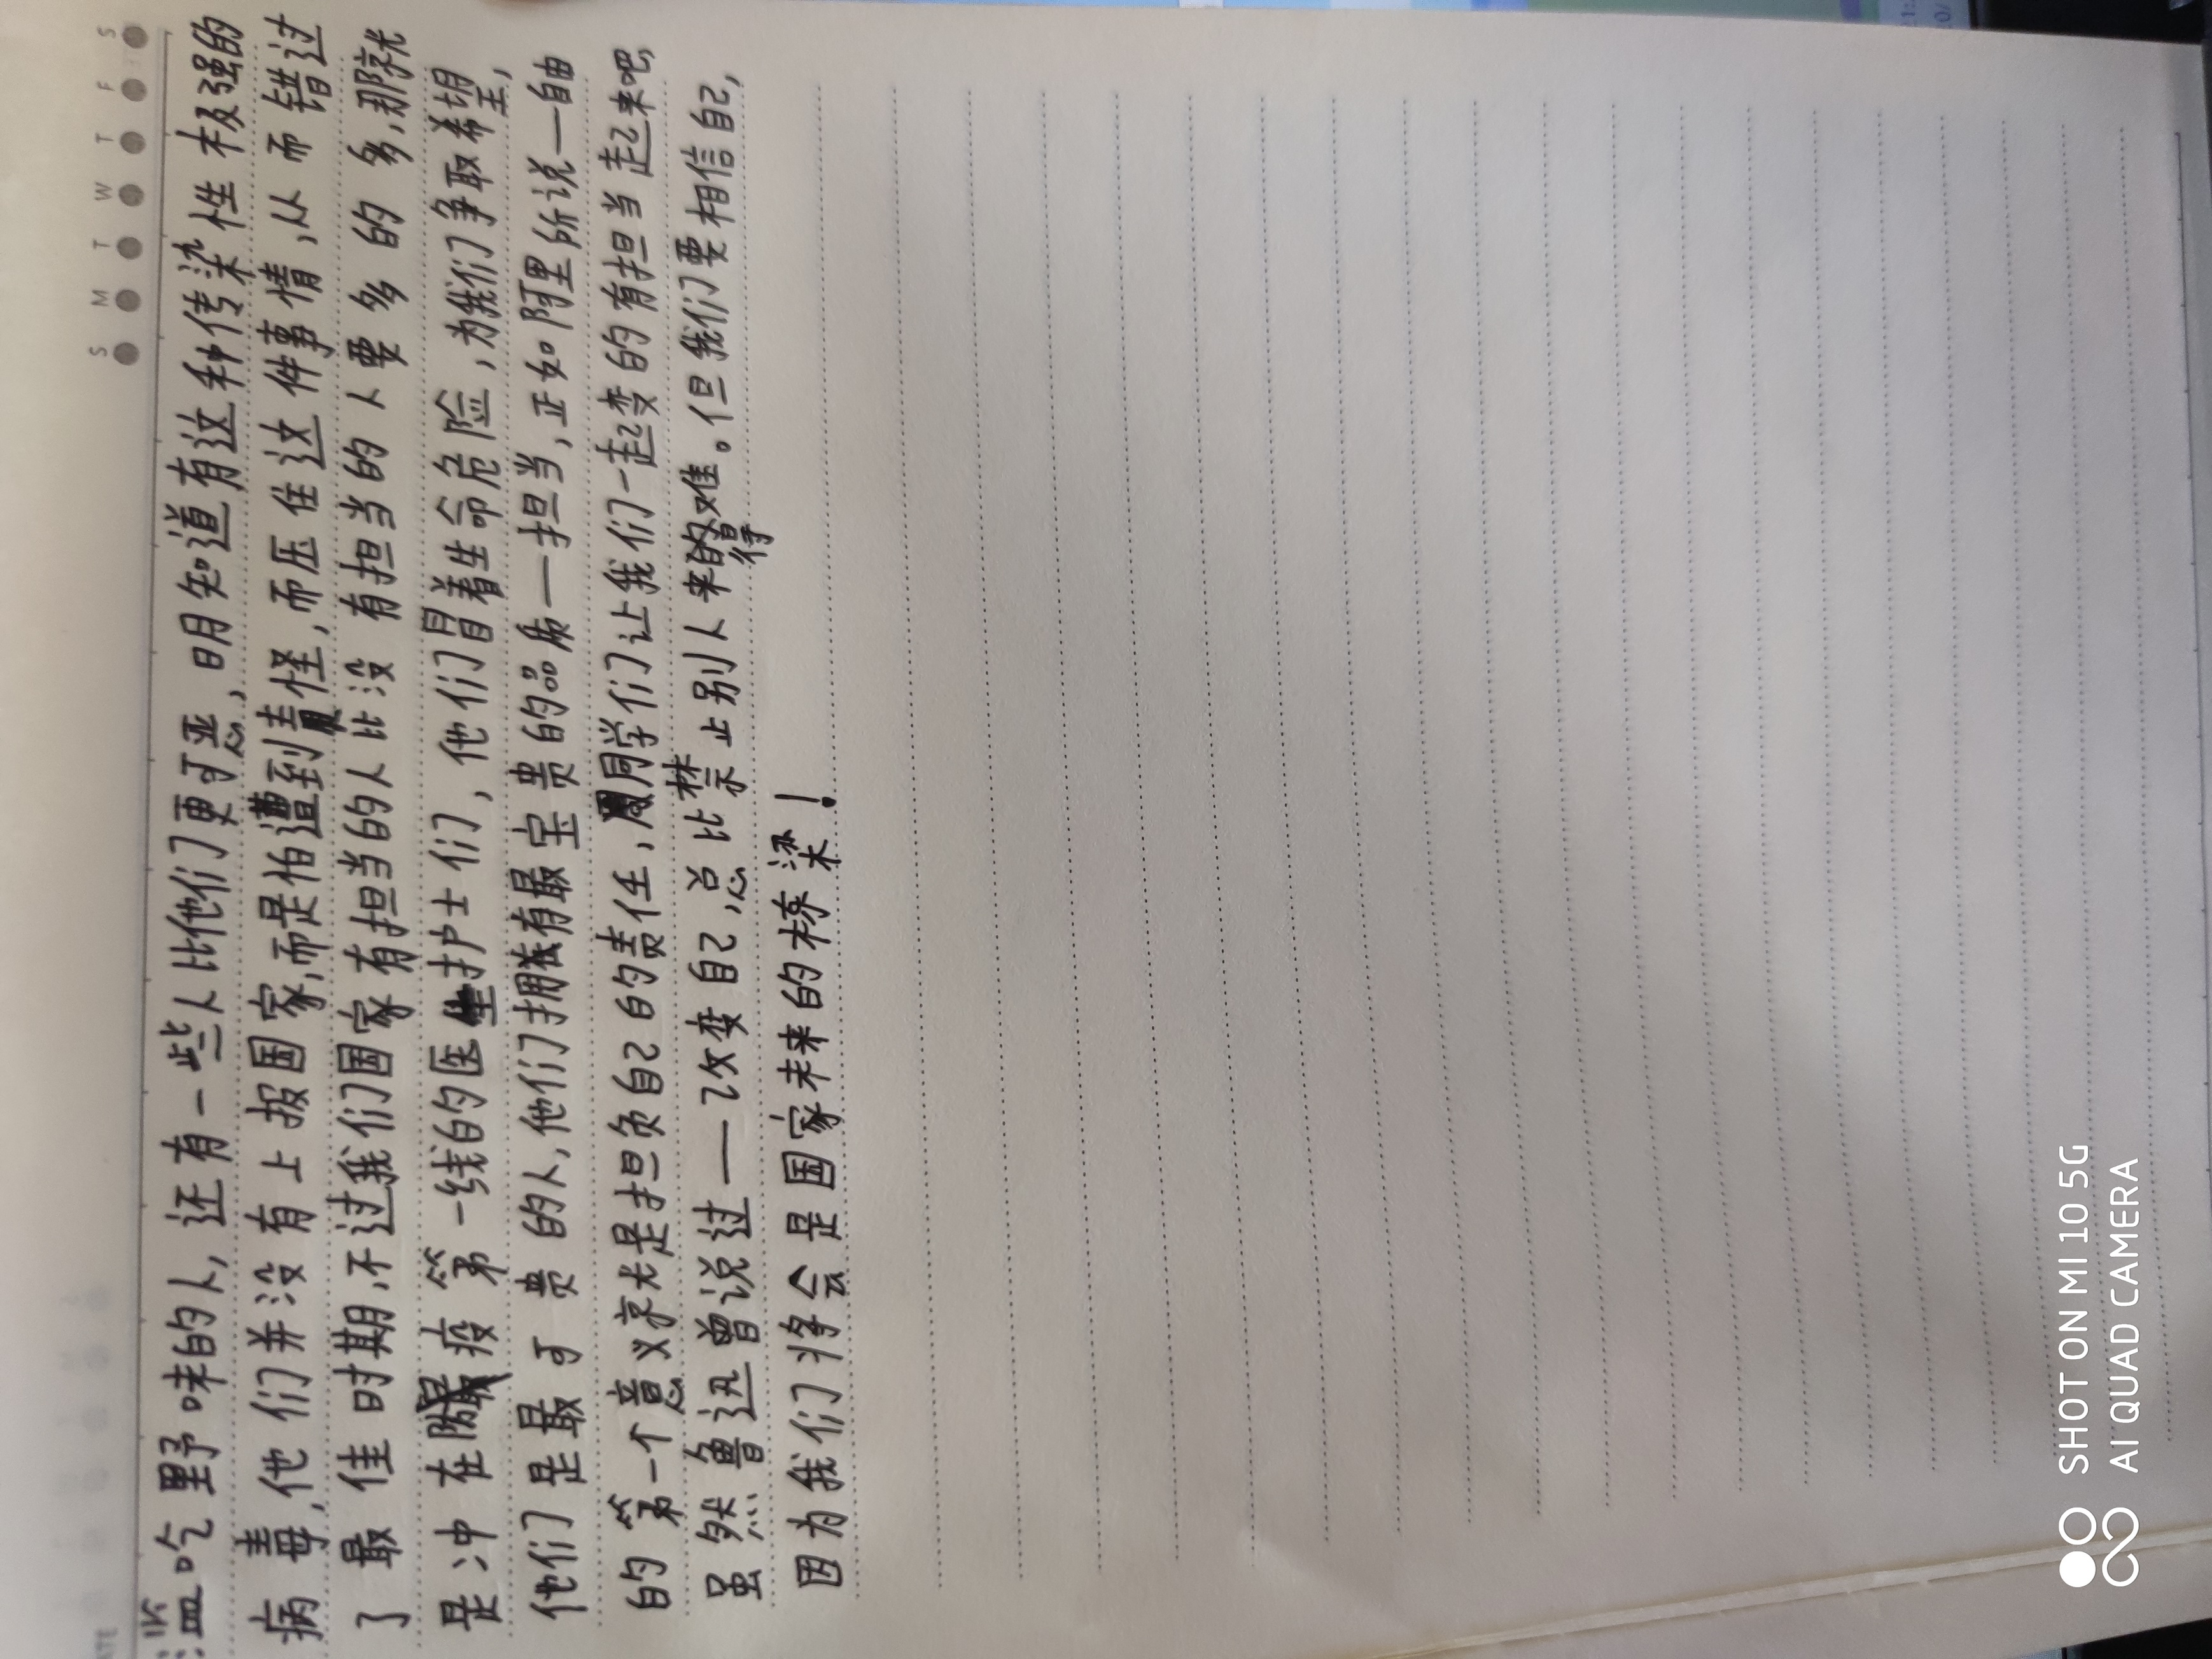 S M T W T F S
滥吃野味的人,还有一些人比他们更可恶,明知道有这种传染性极强的
病毒,他们并没有上报国家,而是怕遭到责怪,而压住这件事情,从而错过
了最佳时期,不过我们国家有担当的人比没有担当的人要多的多,那就
是冲在疫第一线的医护士们,他们冒着生命危险,为我们争取希望,
他们是最可贵的人,他们拥有最宝贵的品质—担当,正如阿里所说—自由
的第一个意义就是担负自己的责任,同学们让我们一起变的有担当起来吧,
虽然鲁迅曾说过——改变自己,总比禁止别人来得难。但我们要相信自己,
因为我们将会是国家未来的栋梁!
SHOT ON MI 10 5G
AI QUAD CAMERA